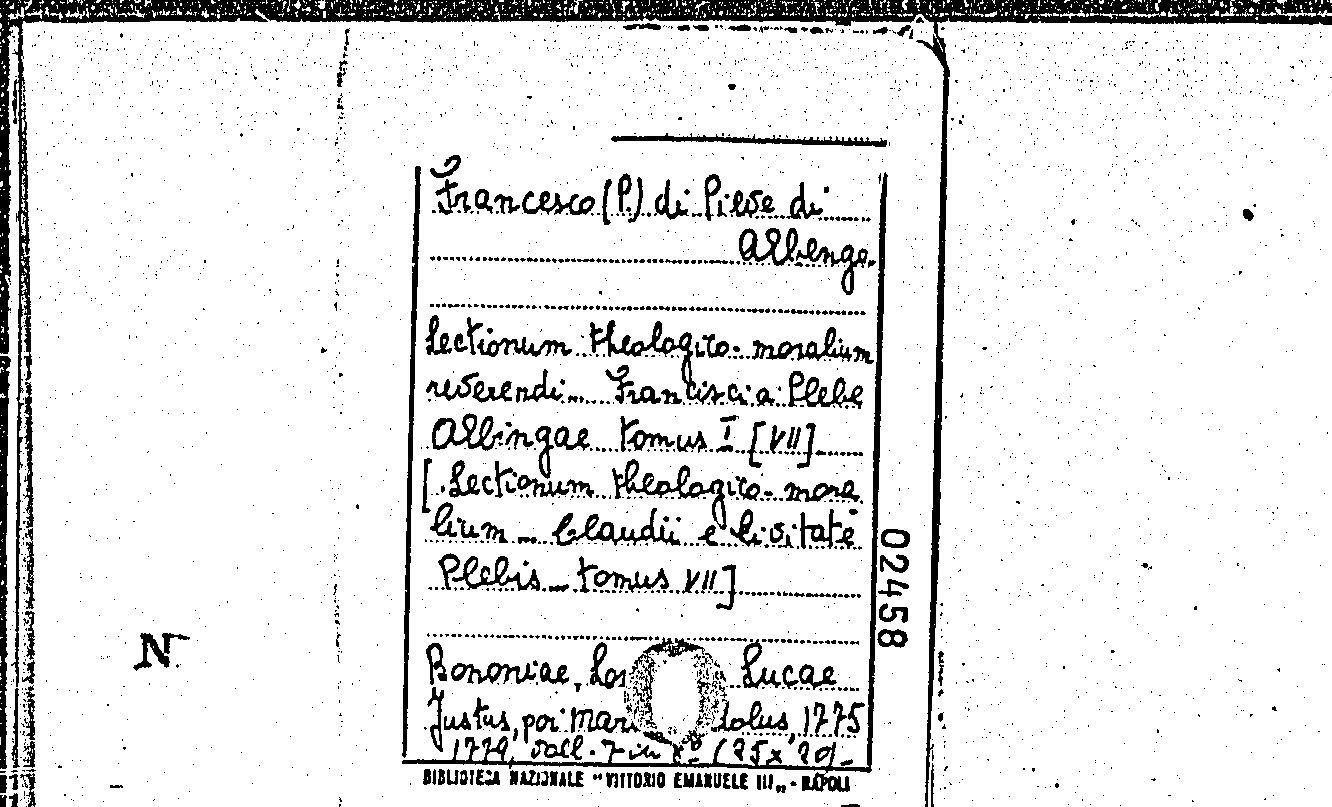 Francesco (P.) di Pieve di
Albenga.
Lectionum theologico-moralium
reverendi... Francisci a Plebe
Albingae tomus I [VII]
[.Lectionum theologico-mora
lium... Claudii e Civitate
Plebis... tomus VII]
Bononiae, Lucae
Justus, poi 1775
1779, voll. 7 in (25x20)
02458
BIBLIOTECA NAZIONALE "VITTORIO EMANUELE III„ - NAPOLI
N